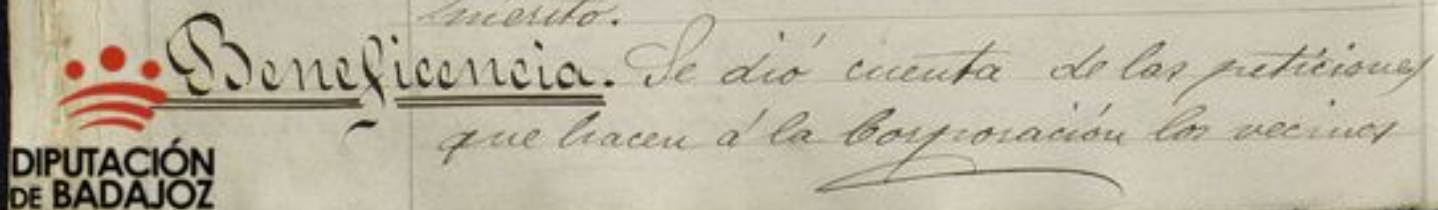 mérito.
Beneficencia. Se dió cuenta de las peticiones
que hacen á la Corporación los vecinos
DIPUTACIÓN
DE BADAJOZ